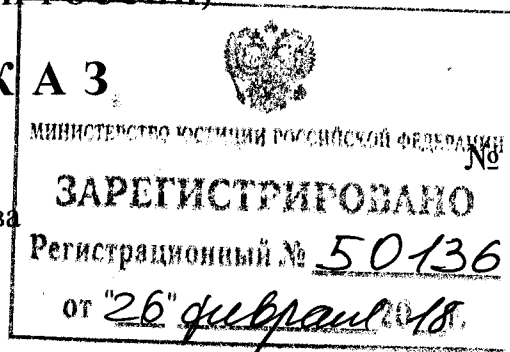 КАЗ
МИНИСТЕРСТВО ЮСТИЦИИ РОССИЙСКОЙ ФЕДЕРАЦИИ
№
ЗАРЕГИСТРИРОВАНО
ва
Регистрационный № 50136
от "26" февраля 2018г.